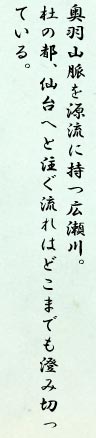 奥羽山脈を源流に持つ広瀬川。
杜の都、仙台へと注ぐ流れはどこまでも澄み切っ
ている。